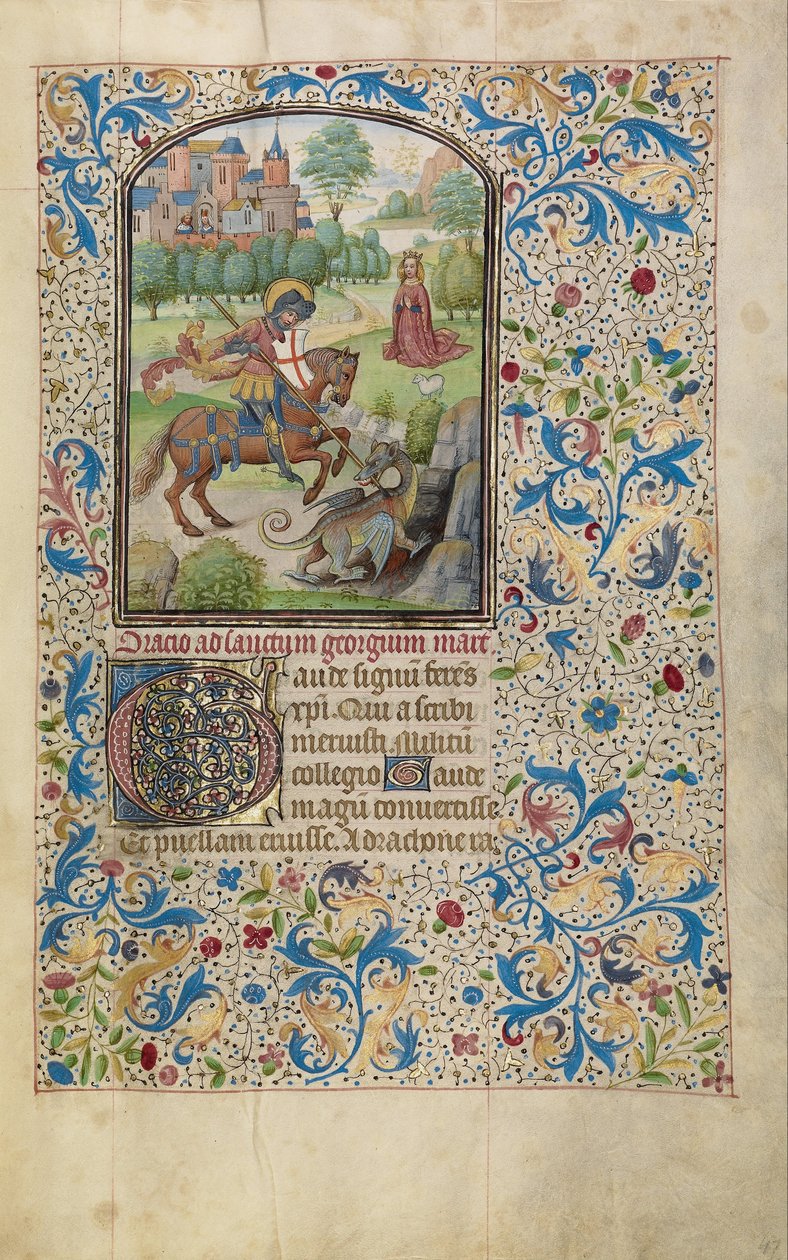 Oracio ad sanctum georgium mart.
Gaude signū ferēs
xpī. Qui a scribi
meruisti. Militū
collegio Gaude
magū conuertisse
Et puellam eruisse. A drachone ra
47